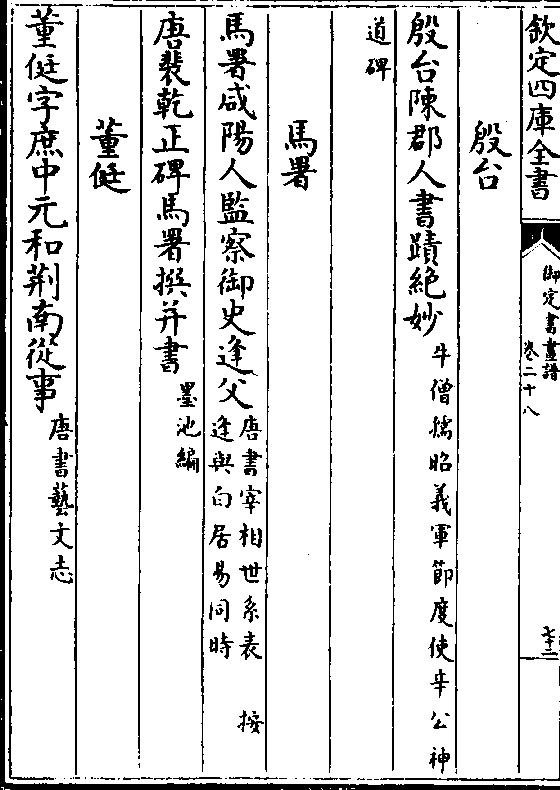 欽定四庫全書
御定書畫譜
卷二十八
七十二
殷台
殷台陳郡人書蹟絶妙牛僧孺昭義軍節度使辛公神
道碑
馬署
馬署咸陽人監察御史逢父唐書宰相世系表 按
逢與白居易同時
唐裴乾正碑馬署撰并書墨池編
董侹
董侹字庶中元和荆南從事唐書藝文志